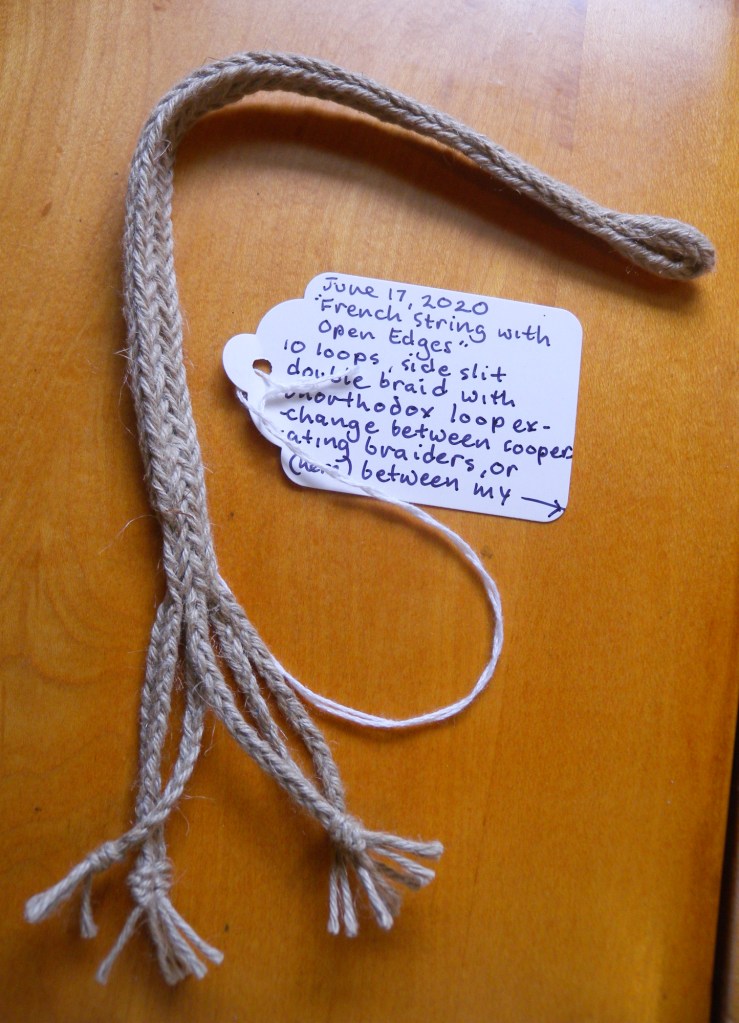 June 17, 2020
"French String with
Open Edges"
10 loops, side slit
double braid with
unorthodox loop ex-
change between cooper
ating braiders, or
(here) between my →